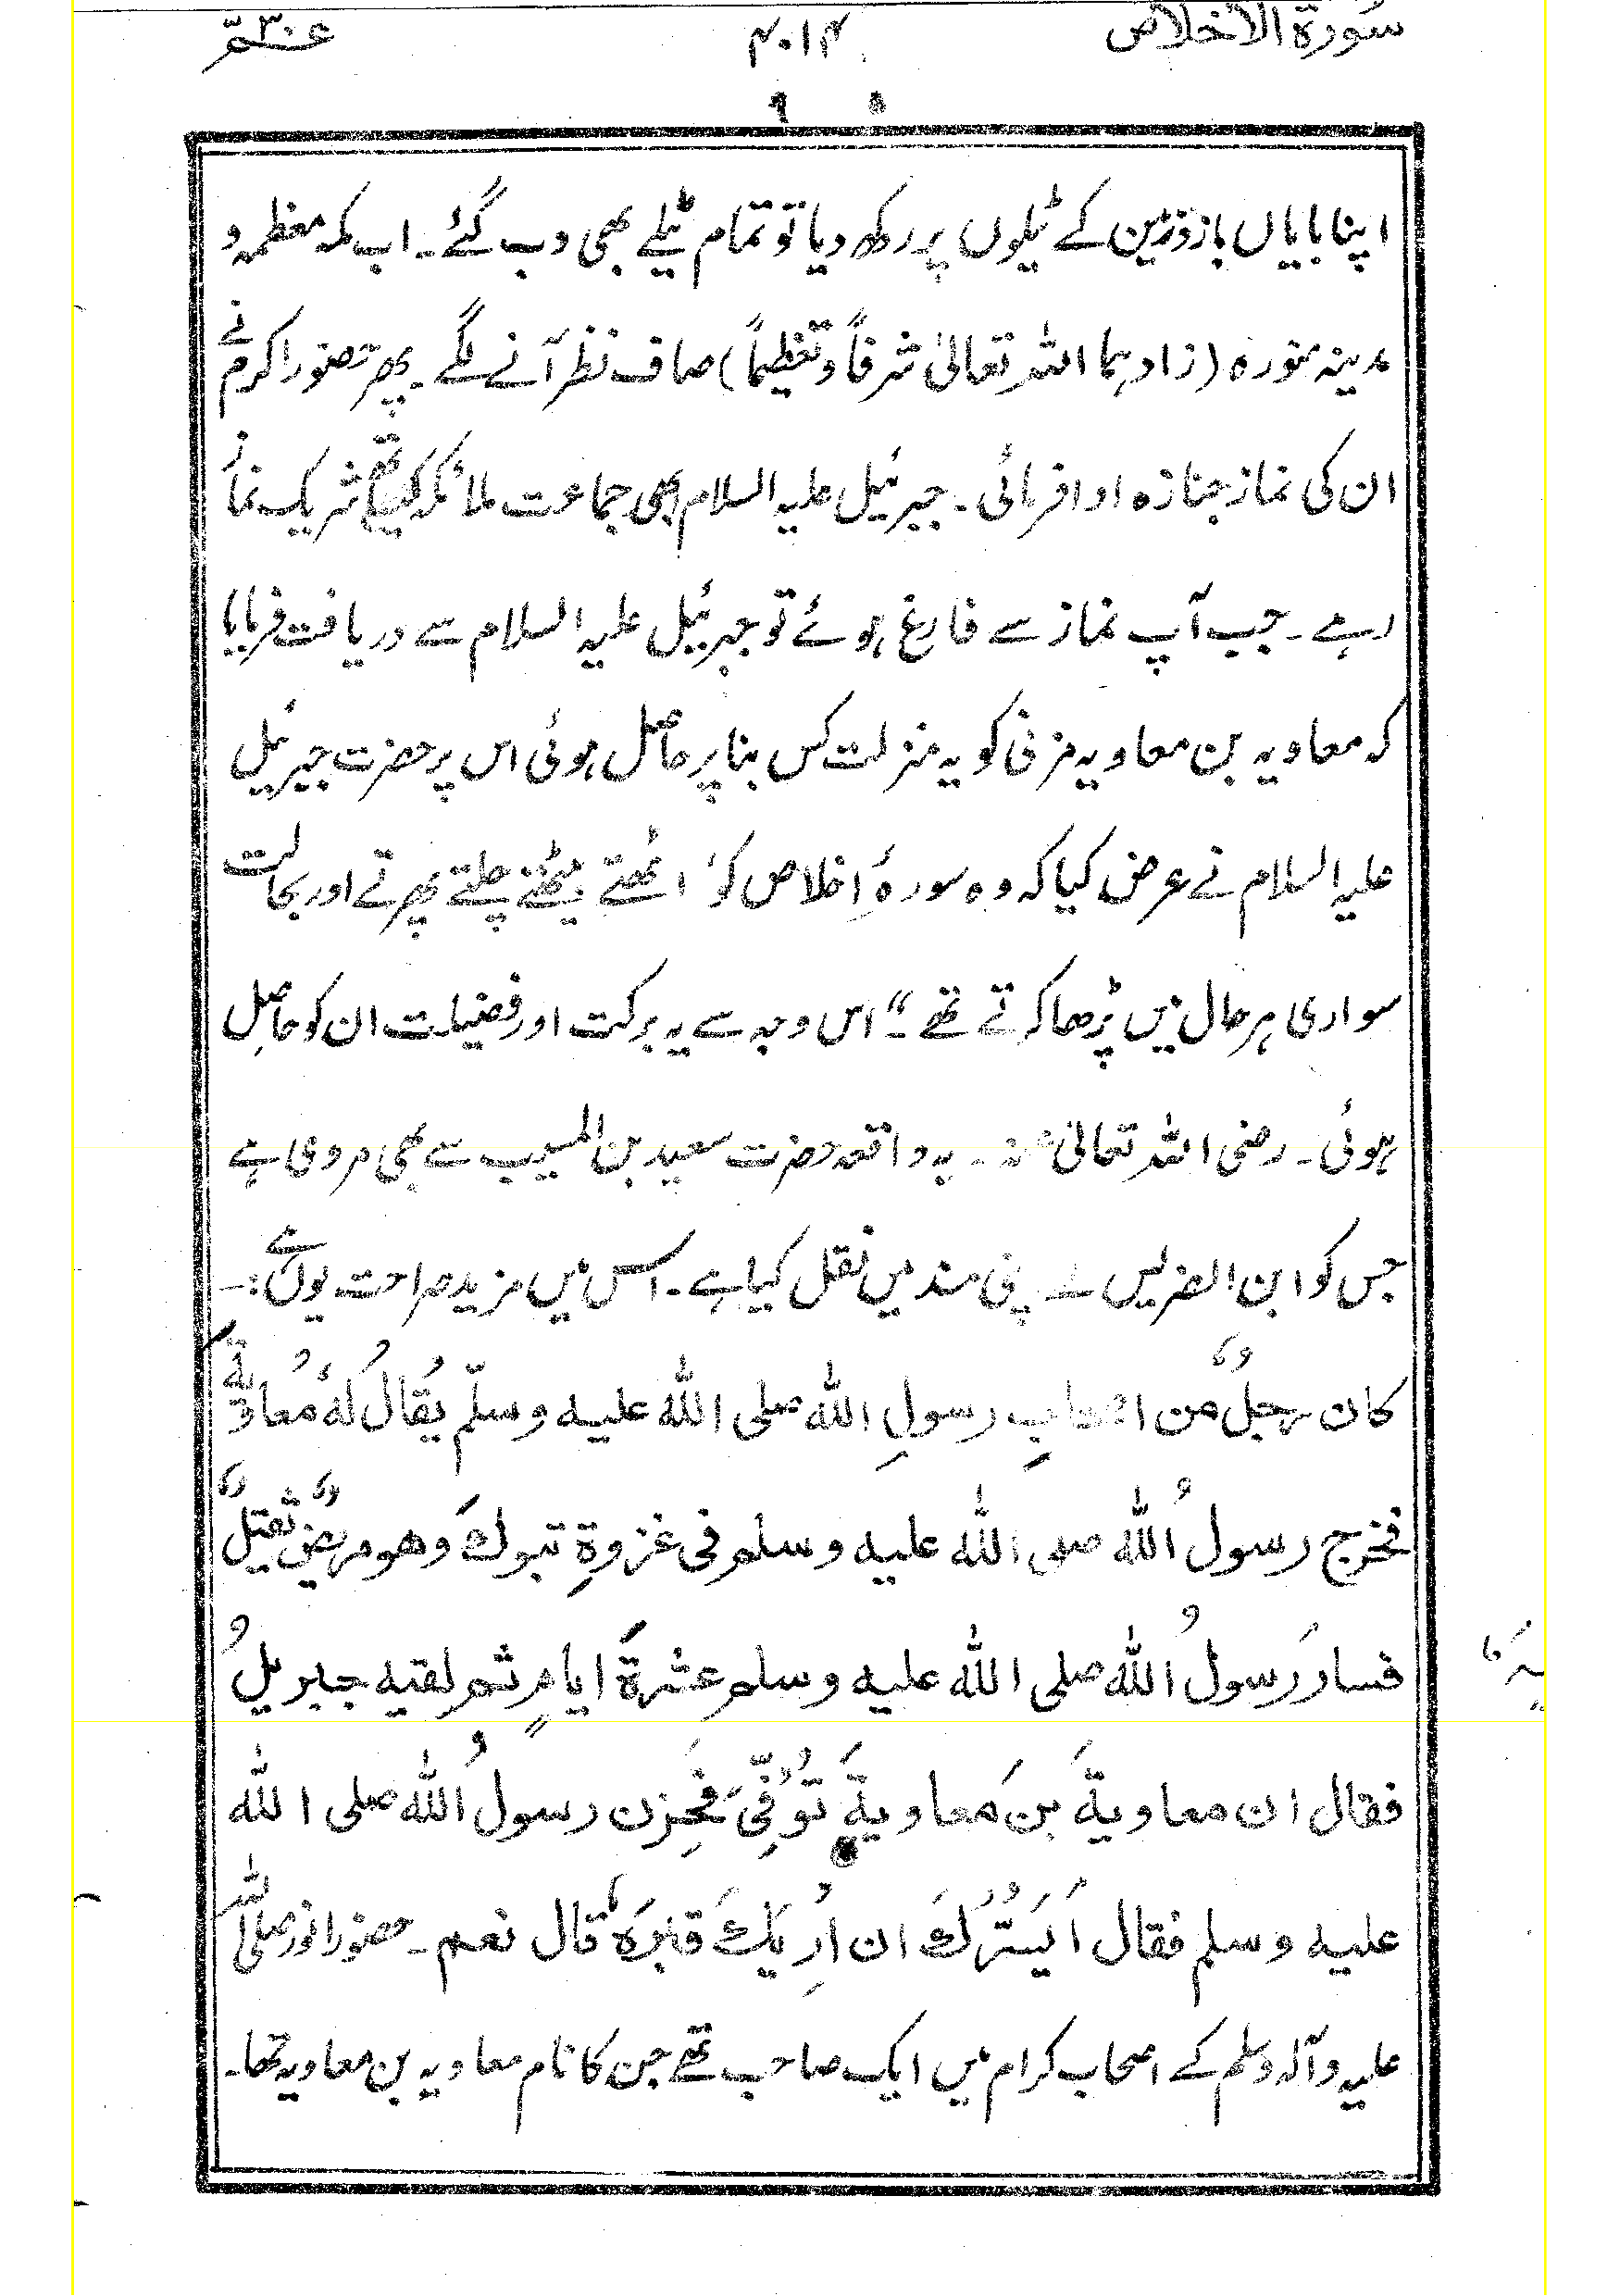 سورة الاخلاص ۴۰۱۴ عۤمّ ۳۰
اپنا بایاں بازو زمین کے ٹیلوں پر رکھ دیا تو تمام ٹیلے بھی دب گئے۔ اب مکہ معظمہ و
مدینہ منورہ (زادہما اللہ تعالیٰ شرفاً و تعظیماً) صاف نظر آنے لگے۔ پھر حضور اکرم نے
ان کی نماز جنازہ ادا فرمائی۔ جبرئیل علیہ السلام بھی جماعت ملائکہ کیساتھ شریک نماز
رہے۔ جب آپ نماز سے فارغ ہوئے تو جبرئیل علیہ السلام سے دریافت فرمایا
کہ معاویہ بن معاویہ مزنی کو یہ منزلت کس بنا پر حاصل ہوئی اس پر حضرت جبرئیل
علیہ السلام نے عرض کیا کہ وہ سورۂ اِخلاص کو اٹھتے بیٹھتے چلتے پھرتے اور بحالت
سواری ہر حال میں پڑھا کرتے تھے۔“ اس وجہ سے یہ برکت اور فضیلت ان کو حاصل
ہوئی۔ رضی اللہ تعالیٰ عنہ۔ یہ واقعہ حضرت سعید بن المسیب سے بھی مروی ہے
جس کو ابن الضریس نے اپنی مسند میں نقل کیا ہے۔ اس میں مزید صراحت یوں ہے:۔
کان رجلٌ من اصحابِ رسولِ اللّٰه صلی اللّٰه علیه وسلّم یُقالُ لَهُ مُعاویةُ
فخرج رسولُ اللّٰه صلی اللّٰه علیه وسلم فی غزوةِ تبوكَ وهو مریضٌ ثقیلٌ
فسارَ رَسولُ اللّٰه صلی اللّٰه علیه وسلم عشرةَ ایامٍ ثم لقیه جبریلُ
فقال ان معاویةَ بنَ مَعاویةَ تُوُفِّیَ فَحَزِنَ رسولُ اللّٰه صلی اللّٰه
علیه وسلم فقال اَیَسُرُّكَ ان اُرِیَكَ قَبْرَهٗ قال نعم۔ حضور انور صلی اللہ
علیہ وآلہ وسلم کے اصحاب کرام میں ایک صاحب تھے جن کا نام معاویہ بن معاویہ تھا۔